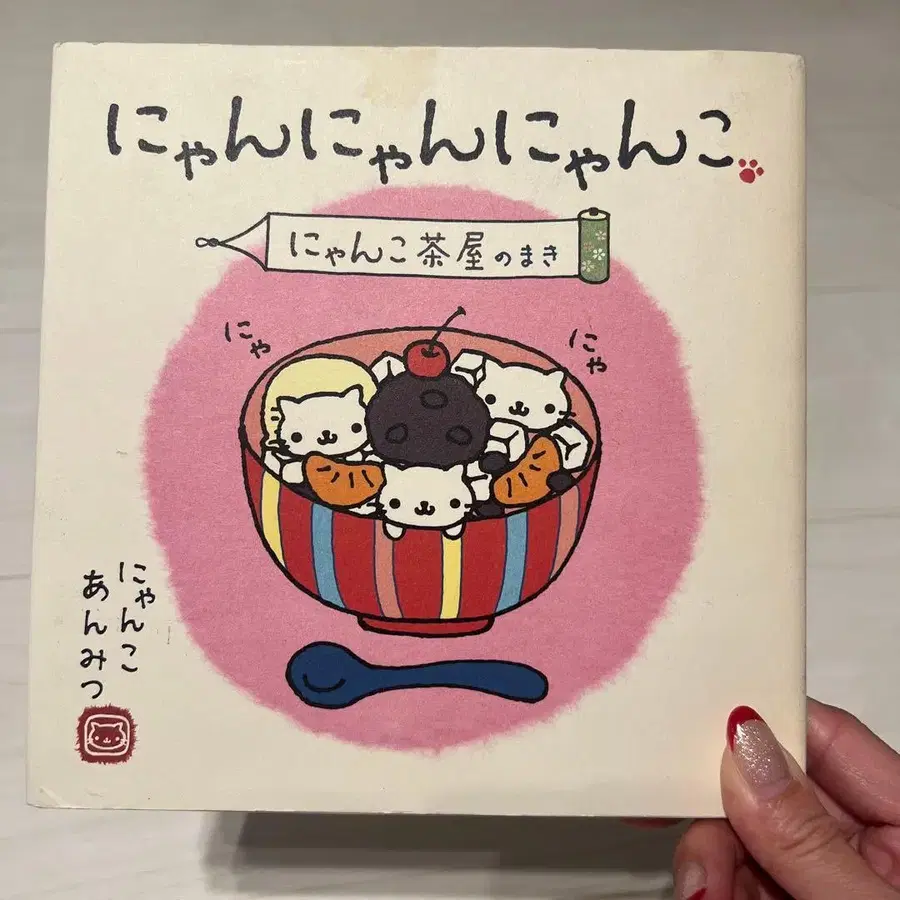 にゃんにゃんにゃんこ
にゃんこ茶屋のまき
にゃ
にゃ
にゃんこ
あんみつ